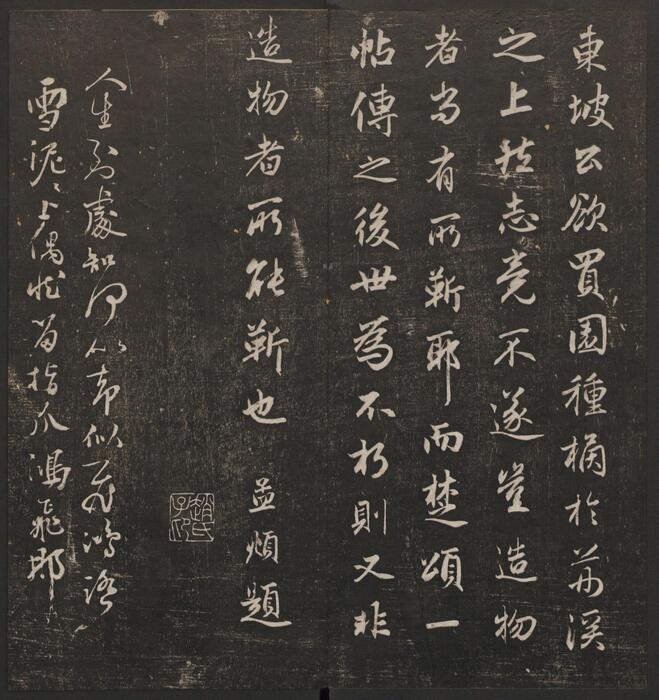 東坡公欲買園種橘於荊溪
之上然志竟不遂豈造物
者尚有所靳耶而楚頌一
帖傳之後世為不朽則又非
造物者所能靳也 孟頫題
趙氏子昂
人生到處知何似却似飛鴻踏
雪泥〻上偶然留指爪鴻飛那